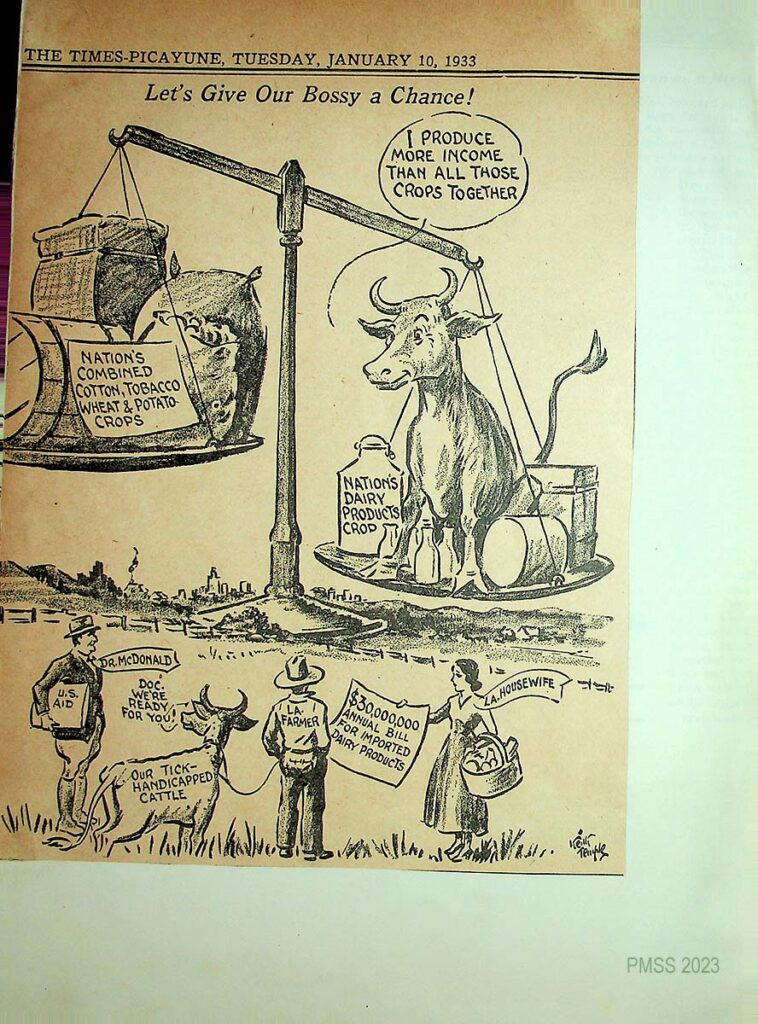 THE TIMES-PICAYUNE, TUESDAY, JANUARY 10, 1933
Let's Give Our Bossy a Chance!
I PRODUCE
MORE INCOME
THAN ALL THOSE
CROPS TOGETHER
NATION'S
COMBINED
COTTON, TOBACCO
WHEAT & POTATO
CROPS
NATION'S
DAIRY
PRODUCTS
CROP
DR. MCDONALD
U.S.
AID
DOC.
WE'RE
READY
FOR YOU!
OUR TICK-
HANDICAPPED
CATTLE
LA.
FARMER
$30,000,000
ANNUAL BILL
FOR IMPORTED
DAIRY PRODUCTS
LA. HOUSEWIFE
Keith
Temple
PMSS 2023